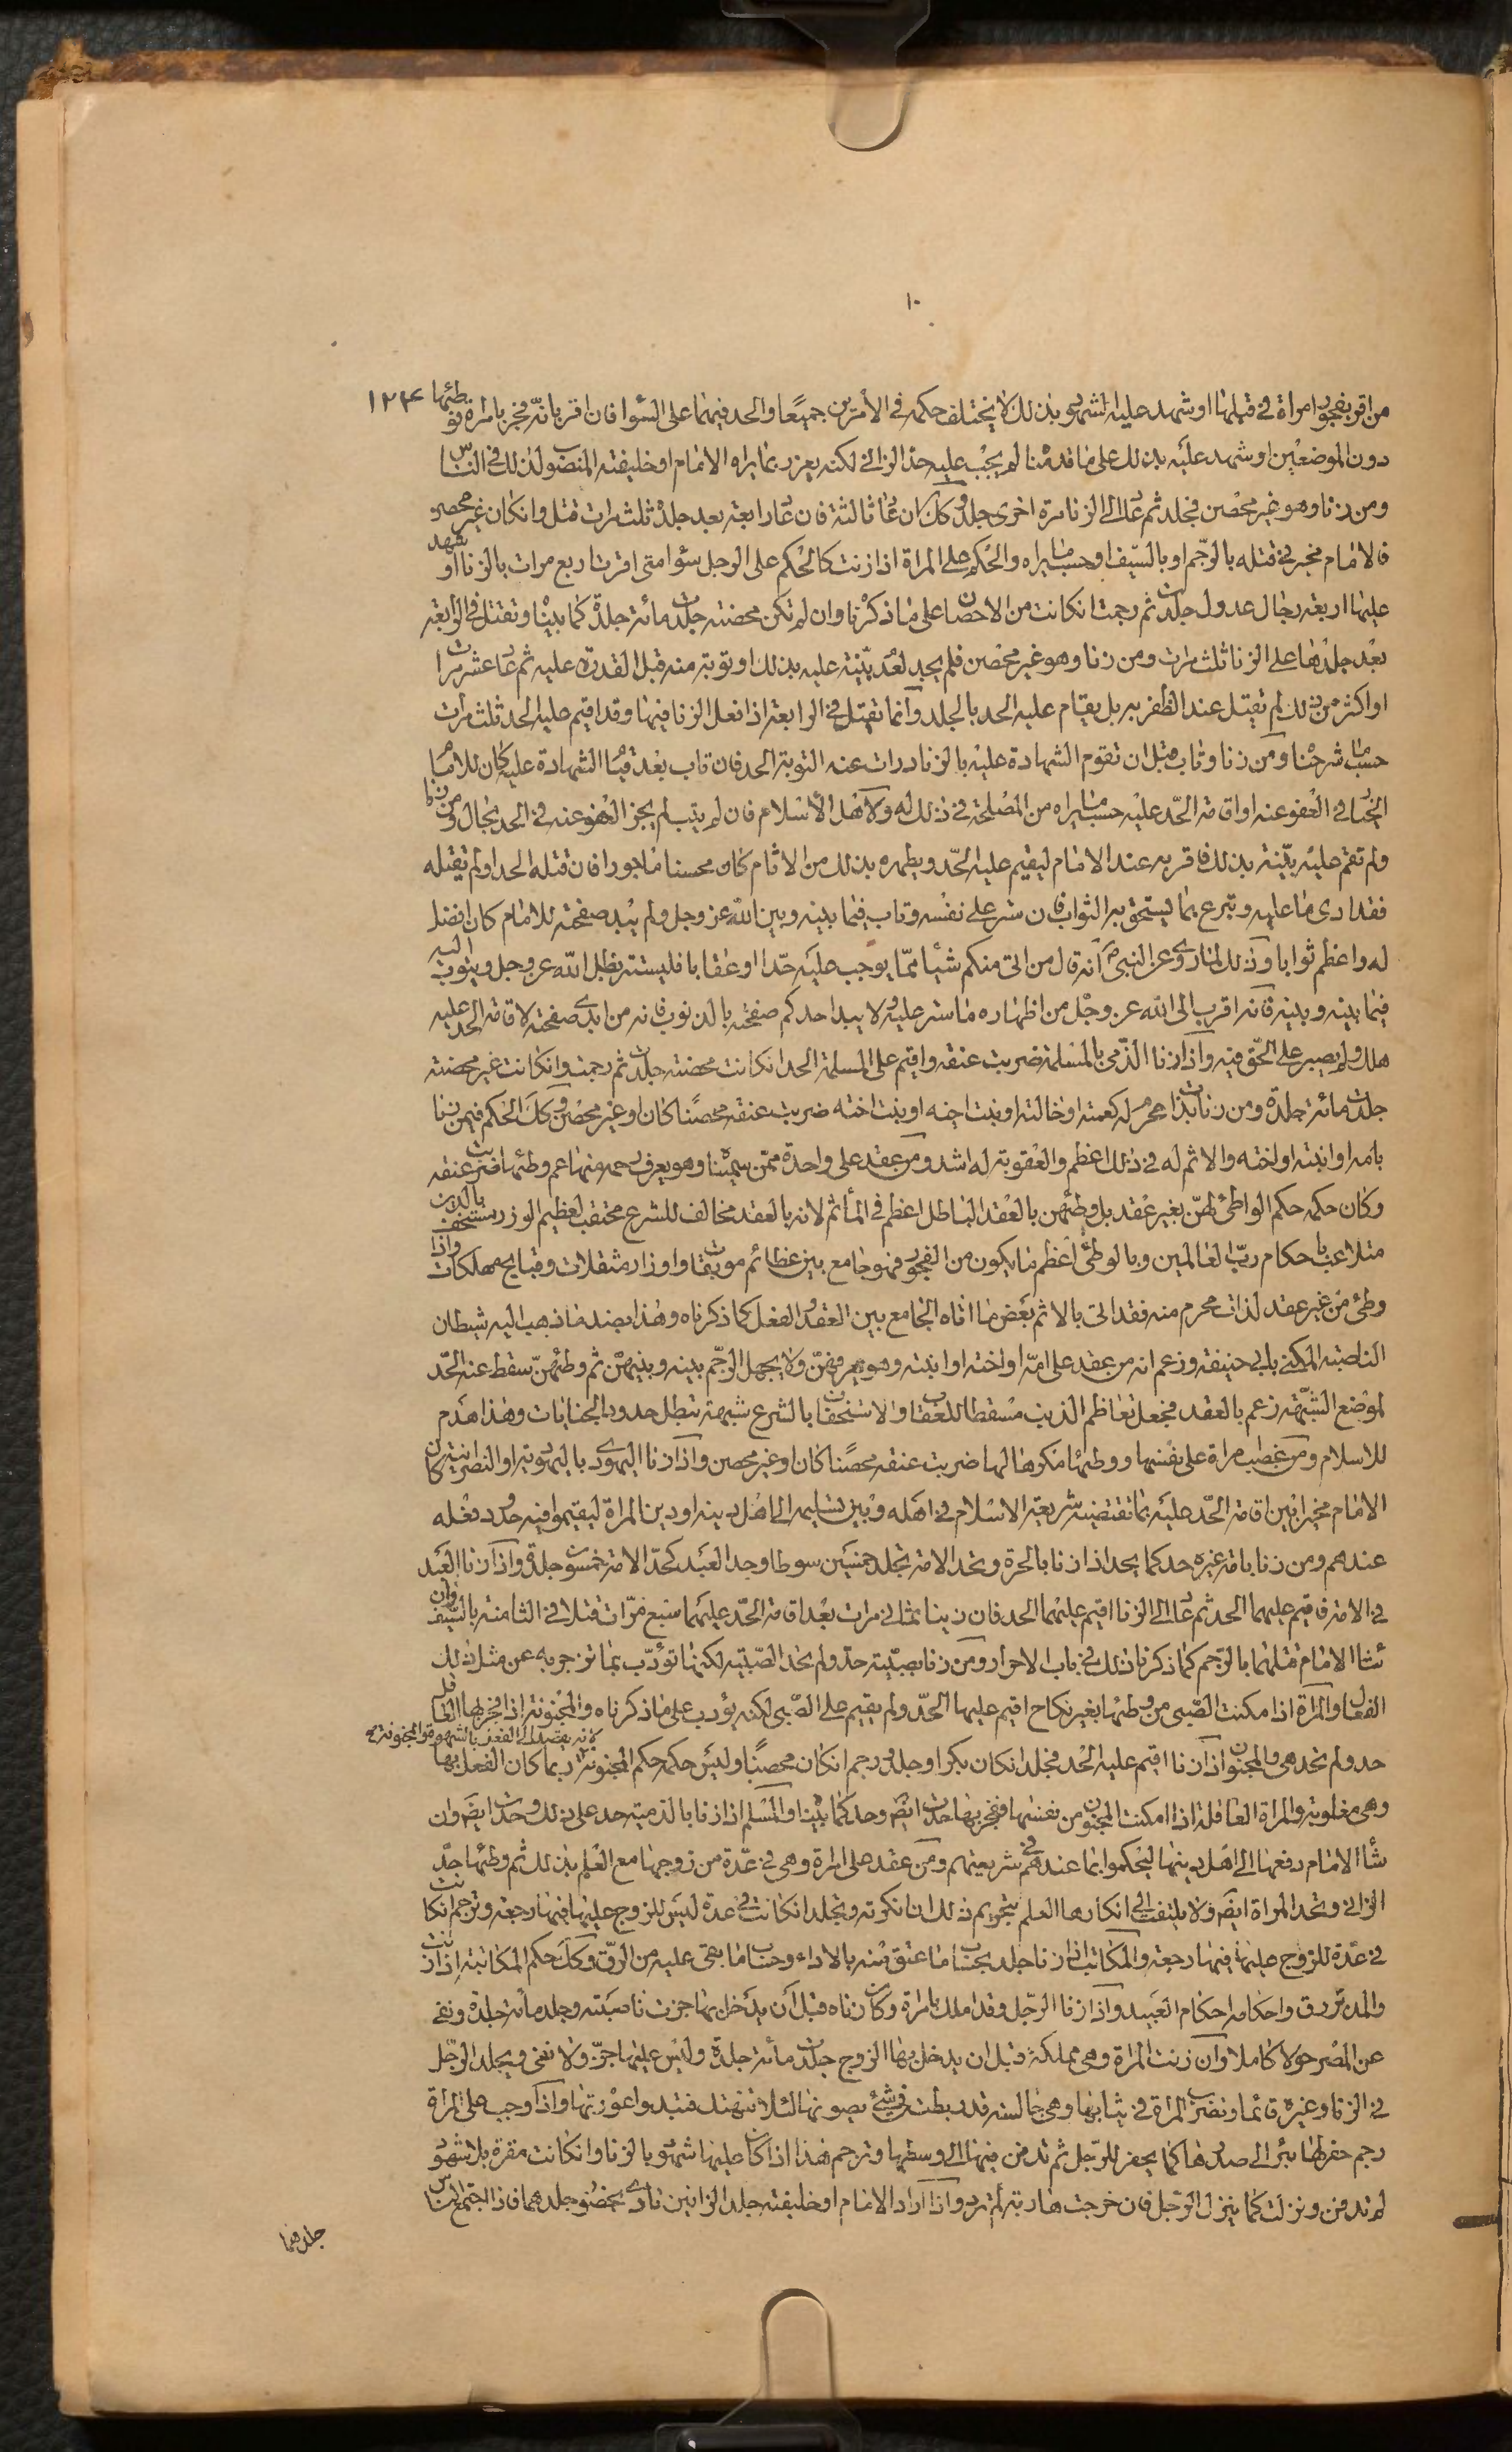 ١٠
١٢٤
من اقر بفجور امراة في قبلها او شهد عليه الشهود بذلك لا يختلف حكمه في الأمرين جميعا والحد فيهما على السوا فان اقر بانه فجر بامراة فوطئها
دون الموضعين او شهد عليه بذلك على ما قدمنا لم يجب عليه حد الزاني لكنه يعزر بما يراه الامام او خليفته المنصوب لذلك في الناس
ومن زنا وهو غير محصن فجلد ثم عاد الى الزنا مرة اخرى جلد وكك ان عاد ثالثة فان عاد رابعة بعد جلده ثلث مرات قتل وان كان غير محصن
فالامام مخير في قتله بالرجم او بالسيف او حسب ما يراه والحكم على المراة اذا زنت كالحكم على الرجل سوا متى اقرت اربع مرات بالزنا او شهد
عليها اربعة رجال عدول جلدت ثم رجمت ان كانت من الاحصان على ما ذكرنا وان لم تكن محصنة جلدت مائة جلدة كما بينا وتقتل في الرابعة
بعد جلدها على الزنا ثلث مرات ومن زنا وهو غير محصن فلم يحد لعدم بينة عليه بذلك او توبته منه قبل القدرة عليه ثم عاد عشر مرات
او اكثر من ذلك لم تقتل عند الظفر به بل يقام عليه الحد بالجلد وانما تقتل في الرابعة اذا فعل الزنا فيها وقد اقيم عليه الحد ثلث مرات
حسب ما شرحنا ومن زنا وتاب قبل ان تقوم الشهادة عليه بالزنا درات عنه التوبة الحد فان تاب بعد قيام الشهادة عليه كان للامام
الخيار في العفو عنه او اقامة الحد عليه حسب ما يراه من المصلحة في ذلك له ولاهل الاسلام فان لم يتب لم يجز العفو عنه في الحد بحال ومن زنا
ولم تقم عليه بينة بذلك فاقر به عند الامام ليقيم عليه الحد ويطهره بذلك من الاثام كان محسنا ماجورا فان قتله الحد او لم يقتله
فقد ادى ما عليه وتبرع بما يستحق به الثواب فان ستر على نفسه وتاب فيما بينه وبين الله عز وجل ولم يبد صفحته للامام كان افضل
له واعظم ثوابا وذلك لما روي عن النبي ص انه قال من اتى منكم شيئا مما يوجب عليه حدا او عقابا فليستتر بظل الله عز وجل ويتوب اليه
فيما بينه وبينه فانه اقرب الى الله عز وجل من اظهاره ما ستر عليه ولا يبد احدكم صفحته بالذنوب فانه من ابدى صفحته لاقامة الحد عليه
هلك ولم يصبر على الحق فيه واذا زنا الذمي بالمسلمة ضربت عنقه واقيم على المسلمة الحد ان كانت محصنة جلدت ثم رجمت وان كانت غير محصنة
جلدت مائة جلدة ومن زنا بذات محرم له كعمته او خالته او بنت اخيه او بنت اخته ضربت عنقه محصنا كان او غير محصن وكك الحكم فيمن زنا
بامه او ابنته او اخته والاثم له في ذلك اعظم والعقوبة له اشد ومن عقد على واحدة ممن سميناه وهو يعرف رحمه منها ثم وطئها ضربت عنقه
وكان حكمه حكم الواطئ لهن بغير عقد بل وطئهن بالعقد الباطل اعظم في المأثم لانه بالعقد مخالف للشرع محتقب لعظيم الوزر مستخف بالدين
متلاعب باحكام رب العالمين وبالوطئ اعظم ما يكون من الفجور فهو جامع بين عظائم موبقات واوزار مثقلات وقبايح مهلكات واذا
وطئ من غير عقد لذات محرم منه فقد اتى بالاثم بعض ما اتاه الجامع بين العقد والفعل كما ذكرناه وهذا بضد ما ذهب اليه شيطان
الناصبة المكنى بابي حنيفة وزعم انه من عقد على امه او اخته او ابنته وهو يعرفهن ولا يجهل الرحم بينه وبينهن ثم وطئهن سقط عنه الحد
لموضع الشبهة زعم بالعقد فجعل تعاظم الذنب مسقطا للعقاب والاستخفاف بالشرع شبهة تبطل حدود الجنايات وهذا هدم
للاسلام ومن غصب امراة على نفسها ووطئها مكرها لها ضربت عنقه محصنا كان او غير محصن واذا زنا اليهودي باليهودية او النصرانية كان
الامام مخير بين اقامة الحد عليه بما تقتضيه شريعة الاسلام في اهله وبين تسليمه الى اهل دينه او دين المراة ليقيموا فيه حدود فعله
عندهم ومن زنا بامة غيره حد كما يحد اذا زنا بالحرة وتحد الامة تجلد خمسين سوطا وحد العبد كحد الامة خمسون جلدة واذا زنا العبد
في الامة فاقيم عليهما الحد ثم عاد الى الزنا اقيم عليهما الحد فان زنيا ثماني مرات بعد اقامة الحد عليهما سبع مرات قتلا في الثامنة بالسيف وان
شا الامام قتلهما بالرجم كما ذكرنا ذلك في باب الاحرار ومن زنا بصبية حد ولم تحد الصبية لكنها تؤدب بما تزجر به عن مثل ذلك
الفعال والمراة اذا مكنت الصبي من وطئها بغير نكاح اقيم عليها الحد ولم يقيم على الصبي لكنه يؤدب على ما ذكرناه والمجنونة اذا فجر بها العاقل
حد ولم تحد هي والمجنون اذا زنا اقيم عليه الحد فجلد ان كان بكرا وجلد ورجم ان كان محصنا وليس حكمه حكم المجنونة لانه يقصد الى الفعل بالشهوة والمجنونة ربما كان الفعل بها
وهي مغلوبة والمراة العاقلة اذا امكنت المجنون من نفسها ففجر بها حدت ايض وحد كما بينا والمسلم اذا زنا بالذمية حد على ذلك وحدت ايض وان
شأ الامام دفعها الى اهل دينها ليحكموا بما عندهم في شريعتهم ومن عقد على امراة وهي في عدة من زوجها مع العلم بذلك ثم وطئها حد
الزاني وتحد المراة ايض ولا يلتفت الى انكارها العلم بتحريم ذلك ان انكرته وتجلد ان كانت في عدة ليس للزوج عليها فيها رجعة وترجم ان كانت
في عدة للزوج عليها فيها رجعة والمكاتب اذا زنا جلد بحساب ما عتق منه بالاداء وحساب ما بقى عليه من الرق وكك حكم المكاتبة اذا زنت
والمدبر رق واحكامه احكام العبيد واذا زنا الرجل وقد املك بامراة وكان زناه قبل ان يدخل بها جزت ناصيته وجلد مائة جلدة ونفي
عن المصر حولا كاملا وان زنت المراة وهي مملكة قبل ان يدخل بها الزوج جلدت مائة جلدة وليس عليها جز ولا نفي ويجلد الرجل
في الزنا وغيره قائما وتضرب المراة في ثيابها وهي جالسة قد ربطت في شئ يصونها لئلا تتهتك فتبدوا عورتها واذا وجب على المراة
رجم حفر لها بئر الى صدرها كما يحفر للرجل ثم تدفن فيها الى وسطها وترجم هذا اذا كان عليها شهود بالزنا وان كانت مقرة بلا شهود
لم تدفن ونزلت كما ينزل الرجل فان خرجت هاربة لم ترد واذا اراد الامام او خليفته جلد الزانيين نادى بحضور جلدهما فاذا اجتمع الناس
جلدهما